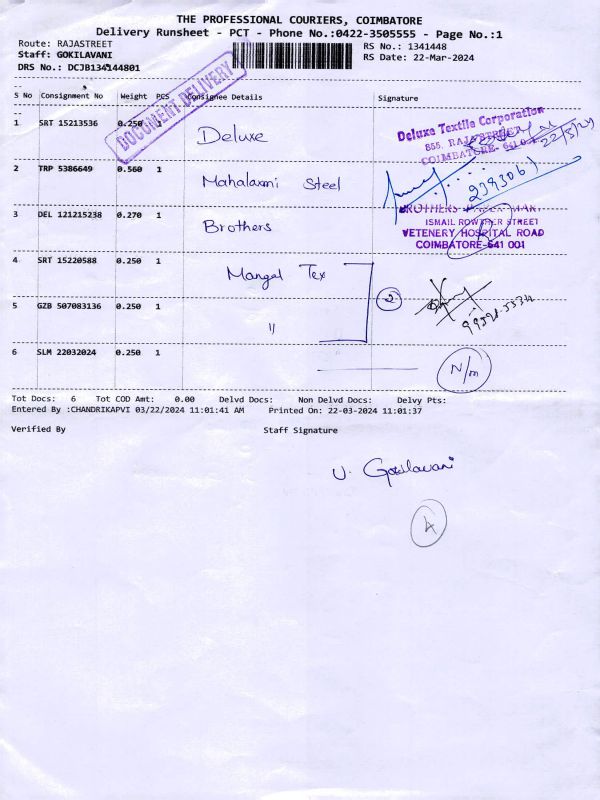 THE PROFESSIONAL COURIERS, COIMBATORE
Delivery Runsheet - PCT - Phone No.:0422-3505555 - Page No.:1
Route: RAJASTREET
RS No.: 1341448
Staff: GOKILAVANI
RS Date: 22-Mar-2024
DRS No.: DCJB134144801
DOCUMENT DELIVERY
S No Consignment No Weight PCS Consignee Details Signature
1 SRT 15213536 0.250 1 Deluxe
Deluxe Textile Corporation
855, RAJA STREET
COIMBATORE- 641 0
22/3/24
2 TRP 5386649 0.560 1 Mahalaxmi Steel
2393061
3 DEL 121215238 0.270 1 Brothers
BROTHERS
ISMAIL ROWTHER STREET
VETENERY HOSPITAL ROAD
COIMBATORE-641 001
4 SRT 15220588 0.250 1 Mangal Tex
2
5 GZB 507083136 0.250 1 "
6 SLM 22032024 0.250 1
N/m
Tot Docs: 6 Tot COD Amt: 0.00 Delvd Docs: Non Delvd Docs: Delvy Pts:
Entered By :CHANDRIKAPVI 03/22/2024 11:01:41 AM Printed On: 22-03-2024 11:01:37
Verified By Staff Signature
V. Gokilavani
4